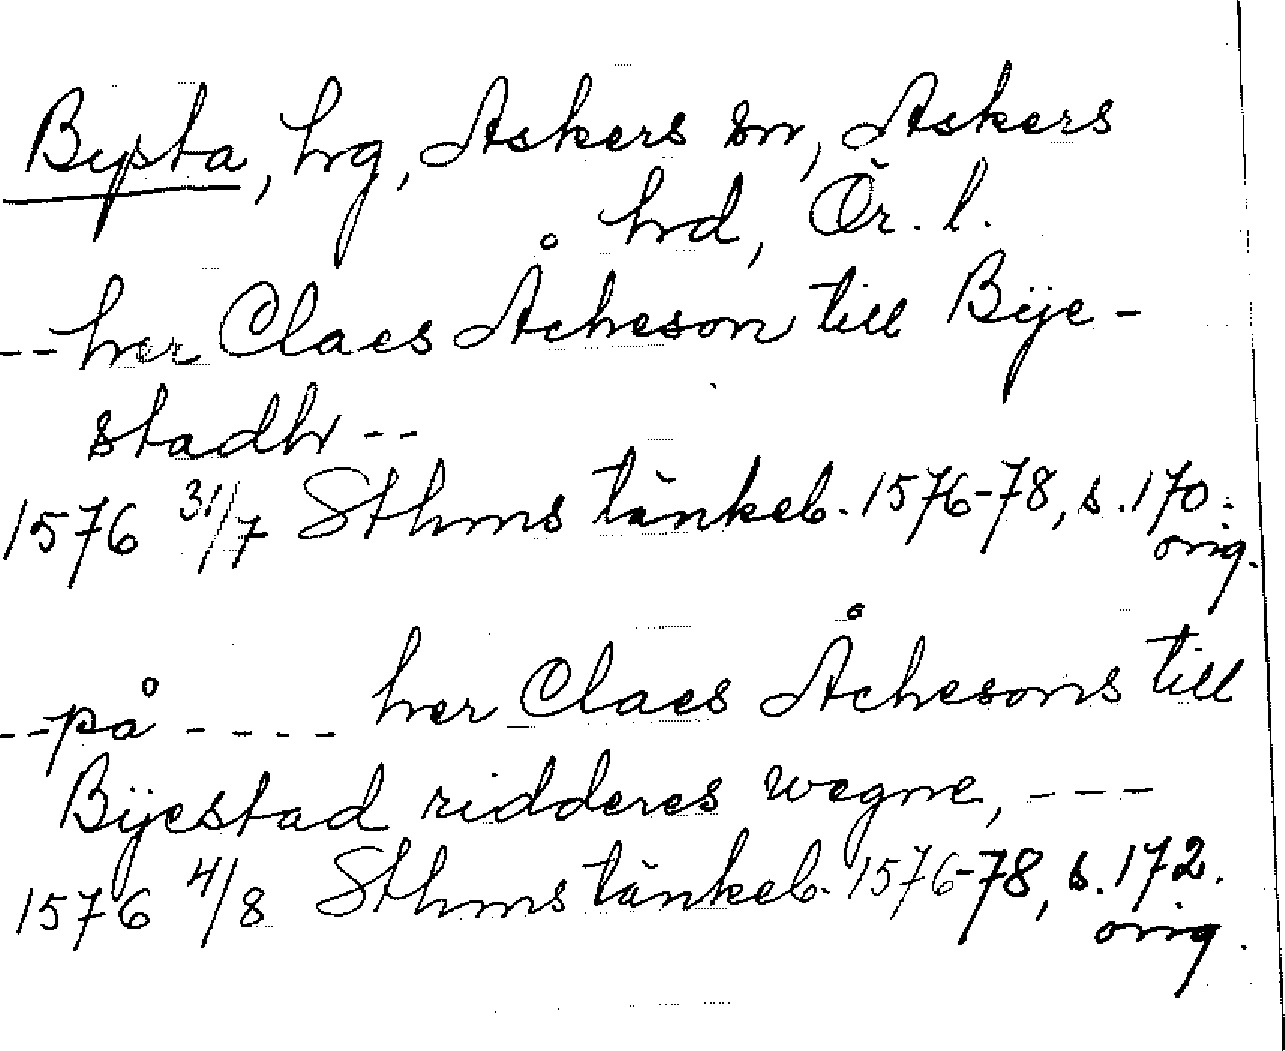 Bysta, hg, Askers sn, Askers
hrd, Ör. l.
-- her Claes Åcheson till Bÿe-
stadh --
1576 31/7 Sthms tänkeb. 1576-78, s. 170.
orig.
-- på ---- her Claes Åchesons till
Bÿestad ridderes wegne, ---
1576 4/8 Sthms tänkeb. 1576-78, s. 172.
orig.